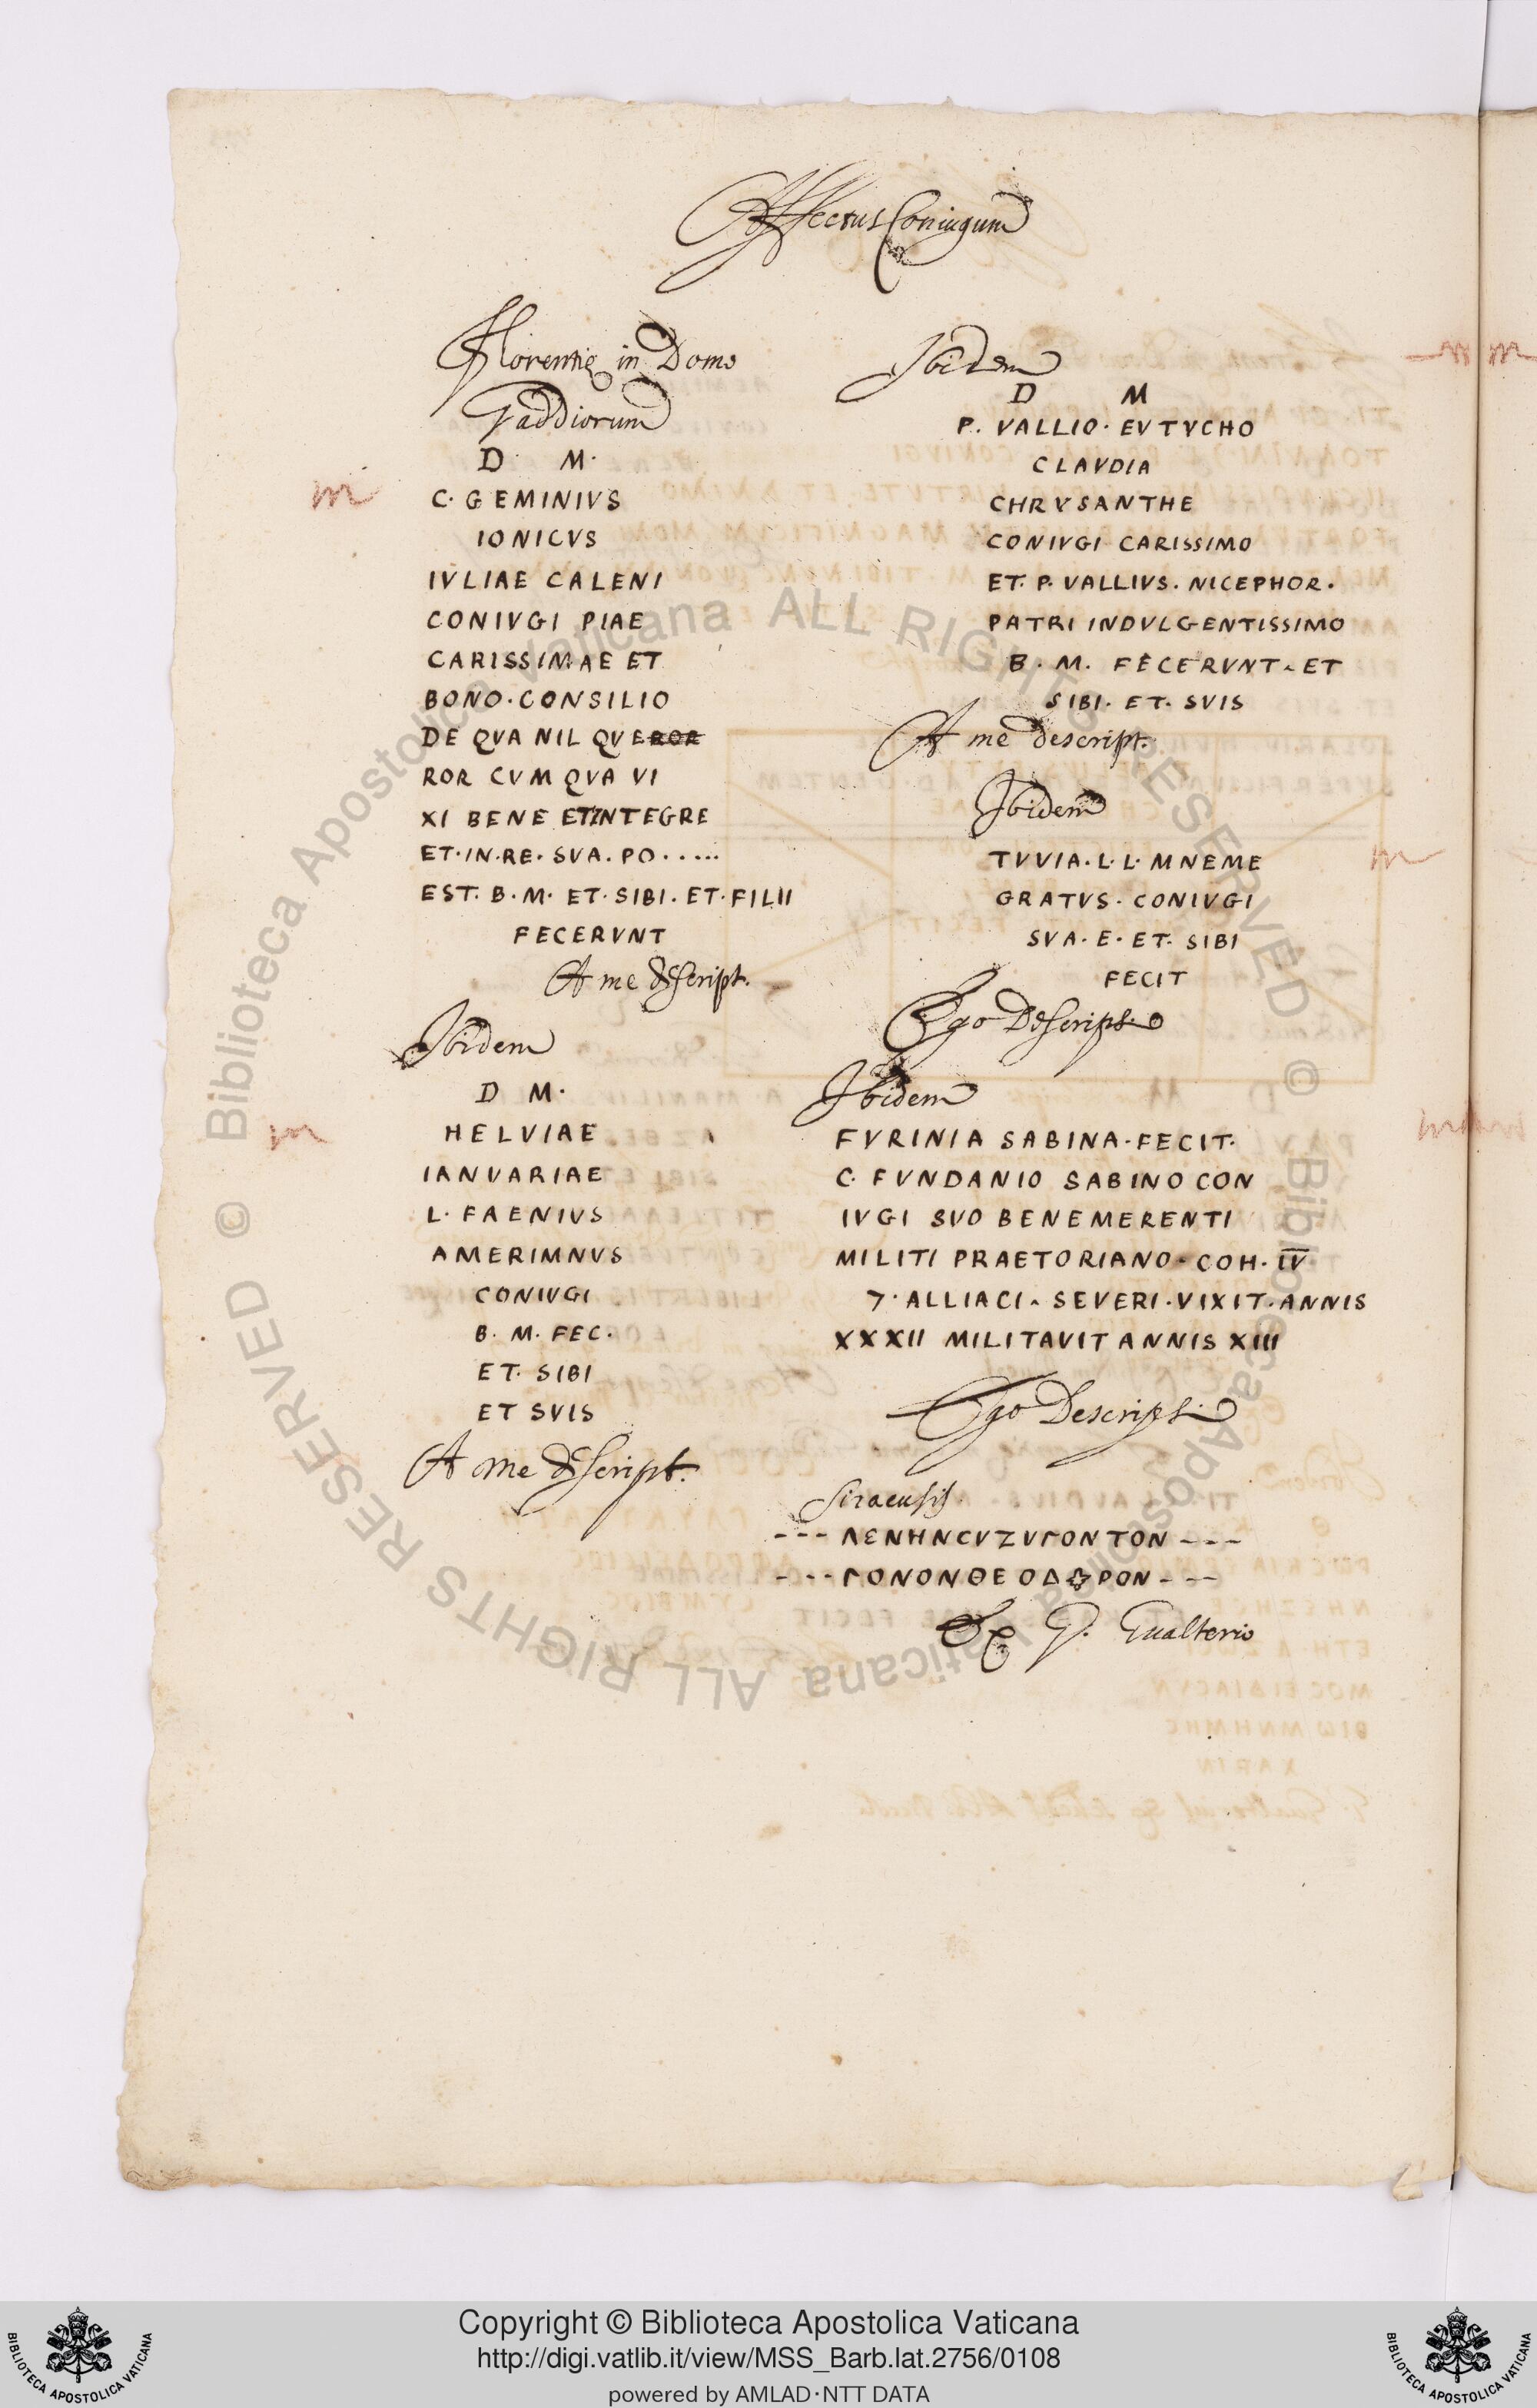 Affectus Coniugum
Florentię in Domo
Gaddiorum
D M.
m
C. GEMINIVS
IONICVS
IVLIAE CALENI
CONIVGI PIAE
CARISSIMAE ET
BONO. CONSILIO
DE QVA NIL QVEROR
ROR CVM QVA VI
XI BENE ET INTEGRE
ET. IN. RE. SVA. PO.....
EST. B. M. ET. SIBI. ET. FILII
FECERVNT
A me descript.
Ibidem
D M.
m
HELVIAE
IANVARIAE
L. FAENIVS
AMERIMNVS
CONIVGI
B. M. FEC.
ET. SIBI
ET SVIS
A me descript.
Ibidem
D M
P. VALLIO. EVTVCHO
CLAVDIA
CHRVSANTHE
CONIVGI CARISSIMO
ET. P. VALLIVS. NICEPHOR.
PATRI INDVLGENTISSIMO
B. M. FECERVNT. ET
SIBI. ET. SVIS
A me descript.
Ibidem
m
TVVIA. L. L. MNEME
GRATVS. CONIVGI
SVA. E. ET. SIBI
FECIT
Ego Descripsi
Ibidem
FVRINIA SABINA. FECIT.
C. FVNDANIO SABINO CON
IVGI SVO BENEMERENTI
MILITI PRAETORIANO. COH. IV
7. ALLIACI. SEVERI. VIXIT. ANNIS
XXXII MILITAVIT ANNIS XIII
Ego Descripsi
Siracusis
--- ΛΕΝΗΝCVΖVΓΟΝΤΟΝ ---
--- ΓΟΝΟΝΘΕΟΔ✣ΡΟΝ ---
Ex G. Gualterio
© Biblioteca Apostolica Vaticana ALL RIGHTS RESERVED
© Biblioteca Apostolica Vaticana ALL RIGHTS RESERVED
Copyright © Biblioteca Apostolica Vaticana
http://digi.vatlib.it/view/MSS_Barb.lat.2756/0108
powered by AMLAD·NTT DATA
BIBLIOTECA APOSTOLICA VATICANA
BIBLIOTECA APOSTOLICA VATICANA